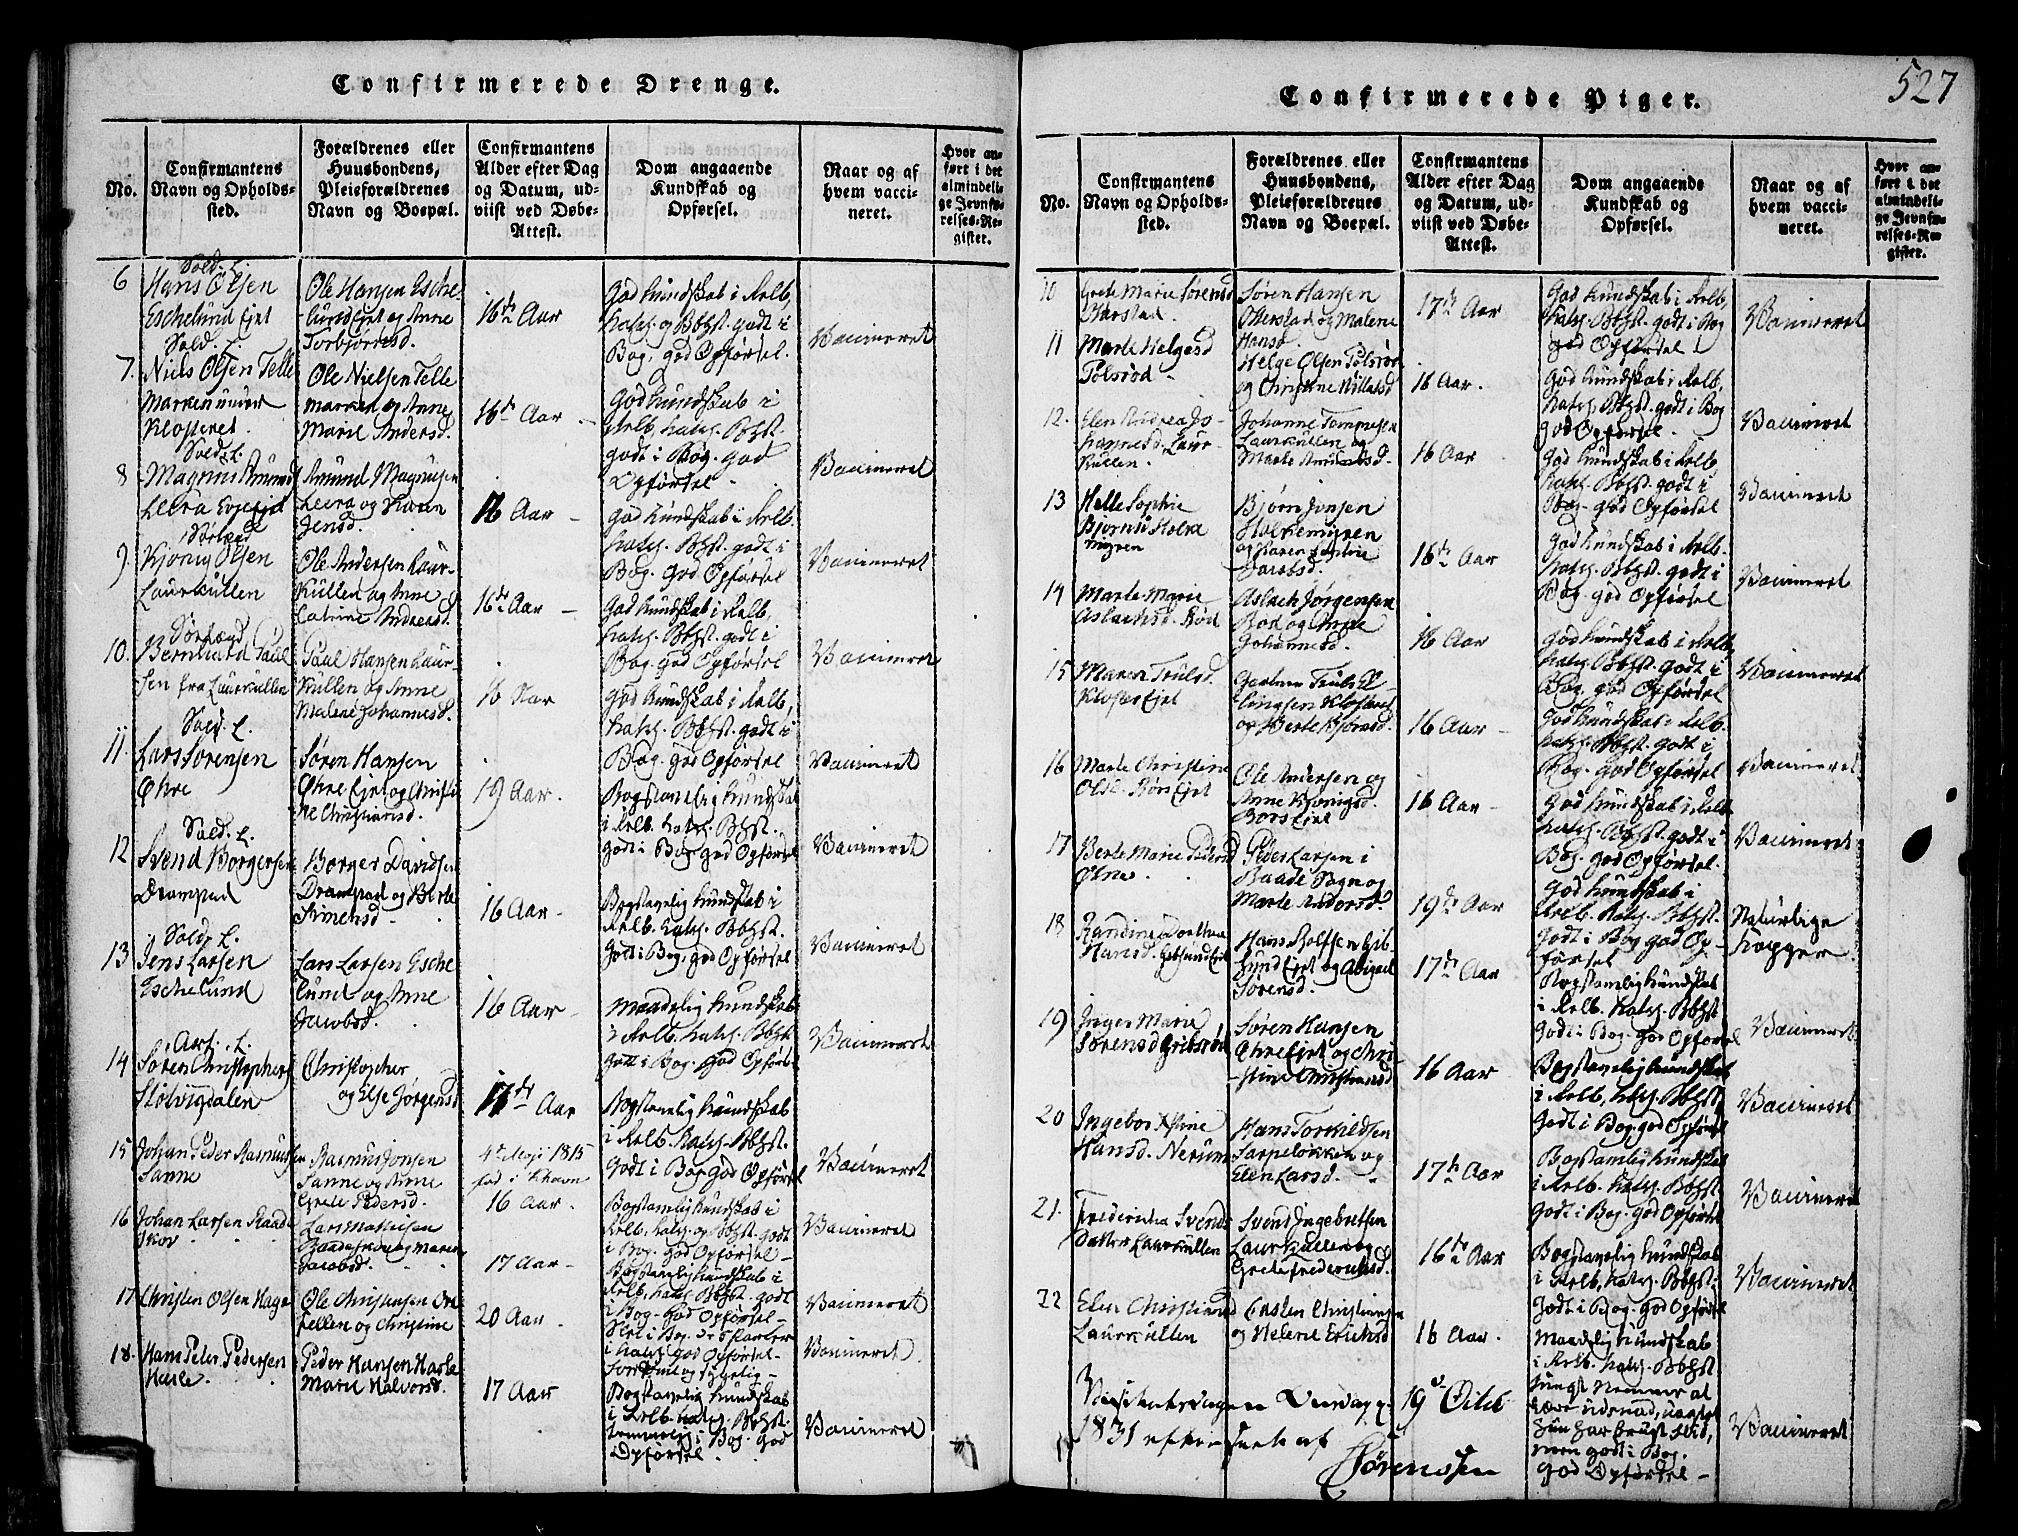 527
Confirmerede Drenge.
No.
Confirmantens
Navn og Opholds-
sted.
Forældrenes eller
Huusbondens,
Pleieforældrenes
Navn og Boepæl.
Confirmantens
Alder efter Dag
og Datum, ud-
viist ved Døbe-
Attest.
Dom angaaende
Kundskab og
Opførsel.
Naar og af
hvem vacci-
neret.
Hvor an-
ført i det
almindeli-
ge Jevnfø-
relses-Re-
gister.
6
Sold. L.
Hans Olsen
Eschelund Ejet
Ole Hansen Esche-
lund Ejet og Anne
Torbjornsd.
16 Aar
God Kundskab i Relb,
Katch. og Bbhst. godt i
Bog. god Opførsel.
Vaccineret
7.
Sold. L.
Niels Olsen Telle
Marken under
Klosteret.
Ole Nielsen Telle
marken og Anne
Marie Andersd.
16 Aar
God Kundskab i
Relb, Katch. Bbhst.
godt i Bog. god
Opførsel
Vaccineret
8
Sold. L.
Magnus Amunds
Leera
Amund Magnusen
Leera og Karen
Jensd.
16 Aar
God Kundskab i Relb.
Katch. Bbhst. godt i
Bog. God Opførsel
Vaccineret
9.
Kjonig Olsen
Laurkullen
Ole Andersen Laur-
Kullen og Anne
Catrine Andersd.
16 Aar
God Kundskab i Relb,
Katch. Bbhst. godt i
Bog. God Opførsel
Vaccineret
10.
Bernhard Paul
sen fra Laurkullen
Paul Hansen Laur-
Kullen og Anne
Malene Johannesd.
16 Aar
God Kundskab i Relb,
Katch. Bbhst. godt i
Bog. god Opførsel
Vaccineret
11.
Sold. L.
Lars Sørensen
Øhre
Søren Hansen
Øhre Ejet og Christi
ne Christiansd.
19 Aar.
Bogstavelig Kundskab
i Relb. Katch. Bbhst.
godt i Bog. god Opførsel
Vaccineret
12
Sold. L.
Svend Borgersen
Dramstad
Borger Davidsen
Dramstad og Berte
Simensd
16 Aar
Bogstavelig Kundskab i
Relb. Katch. Bbhst.
Godt i Bog. god Opførsel
Vaccineret
13
Sold. L.
Jens Larsen
Eschelund
Lars Larsen Esche
lund og Anne
Jacobsd.
16 Aar
Maadelig Kundskab
i Relb. Katch. Bbhst
Godt i Bog. God Opførs
Vaccineret
14
Art. L.
Søren Christophers
Stolvigdalen
Christopher
og Else Jørgensd
17 Aar
Bogstavelig Kundskab
i Relb. Katch. Bbhst.
Godt i Bog. god Opførsel
Vaccineret
15
Johan Peder Rasmusen
Sanne
Rasmus Jonsen
Sanne og Anne
Grete Pedersd.
4 Maji 1815
fød i Khavn
16 Aar.
Bogstavelig Kundskab i
Relb, Katch. og Bbhst. godt
i Bog. God Opførsel
Vaccineret
16
Johan Larsen Raade
skov
Lars Mathisen
Raadeskov og Maren
Jacobsd.
17 Aar
Bogstavelig Kundskab i
Relb, Katch. Bbhst. godt
i Bog. God Opførsel
Vaccineret
17
Christen Olsen Hage
Ole Christensen
og Christine
20 Aar
Slet i Bog.
i Katch. god Opførsel
Vaccineret.
18.
Hans Peter Pedersen
Hasle.
Peder Hansen Hasle
Marie Halvorsd.
17 Aar
Bogstavelig Kundskab
i Relb. Katch. Bbhst.
temmelig i Bog. God
Opførsel
Vaccineret
Confirmerede Piger.
No.
Confirmantens
Navn og Opholds-
sted.
Forældrenes eller
Huusbondens,
Pleieforældrenes
Navn og Boepæl.
Confirmantens
Alder efter Dag
og Datum, ud-
viist ved Døbe-
Attest.
Dom angaaende
Kundskab og
Opførsel.
Naar og af
hvem vacci-
neret.
Hvor an-
ført i det
almindeli-
ge Jevnfø-
relses-Re-
gister.
10
Grete Marie Sørensd
Otterstad.
Søren Hansen
Otterstad og Malene
Hansd.
17 Aar
God Kundskab i Relb,
Katch. Bbhst. godt i Bog
god Opførsel
Vaccineret
11
Marte Helgesd
Tolsrød
Helge Olsen Tolsrød
og Christine Nillesd
16 Aar.
God Kundskab i Relb,
Katch. Bbhst. godt i Bog
God Opførsel.
Vaccineret
12.
Elen Andrea Jo-
hannesd. Laur-
Kullen.
Johanne Tommesen
Laurkullen og
Marte
16 Aar
God Kundskab i Relb,
Katch. Bbhst. godt i
Bog. God Opførsel
Vaccineret
13
Helle Sophie
Bjornsd Holke
myren
Bjørn Jonsen
Holkemyren
og Karen Sophie
Jacobsd.
16 Aar
God Kundskab i Relb.
Katch. Bbhst. Godt i
Bog. god Opførsel
Vaccineret
14
Marte Marie
Aslachsd. Rød
Aslach Jørgensen
Rød og Anne
Johannesd.
16 Aar
God Kundskab i Relb,
Katch. Bbhst. godt i
Bog. God Opførsel
Vaccineret
15
Maren Trulsd.
Kloster Ejet
Truls El-
lingsen Kloster
og Berte Kjonsd.
16 Aar
God Kundskab i Relb.
Katch. Bbhst. Godt i
Bog. God Opførsel
Vaccineret
16
Marte Christine
Olsd. Røn Ejet
Ole Andersen og
Anne Kjonigsd.
16 Aar
God Kundskab i Relb
Katch. Bbhst. godt i
Bog. god Opførsel.
Vaccineret
17
Berte Marie Pedersd
Øhre.
Peder Larsen i
Raade Sogn og
Marte Andersd.
19 Aar
God Kundskab i
Relb. Katch. Bbhst.
Godt i Bog god Op-
førsel
Naturlige
Kopper
18
Randine Dorthea
Hansd. Gibsund Ejet
Hans Rolfsen Gib
sund Ejet og Abigael
Sørensd.
17 Aar
Bogstavelig Kundskab
i Relb. Katch. Bbhst
Godt i Bog. God Opførsel
Vaccineret
19
Inger Marie
Sørensd Gribsrød
Søren Hansen
Øhre Ejet og Chri
stine Christiansd
16 Aar
Bogstavelig Kundskab
i Relb, Katch. Bbhst,
Godt i Bog. god Opførsel
Vaccineret
20
Ingebor Stine
Hansd. Nerum
Hans Torkildsen
Sarpeløkken og
Elen Larsd.
17 Aar
Bogstavelig Kundskab
i Relb. Katch. Bbhst
Godt i Bog. god Opførsel
Vaccineret
21.
Fredericha Svends
Datter Laurkullen
Svend Ingebretsen
Laurkullen og
Grete Frederichsd.
16 Aar
Bogstavelig Kundskab
i Relb, Katch. Bbhst.
Godt i Bog. god Opførsel
Vaccineret
22
Elen Christensd
Laurkullen
Christensen
og Helene Erichsd
16 Aar.
Maadelig Kundskab
i Relb. Katch. Bbhst
tungt Nemme at
lære udenad,
hun har brugt Flid,
men godt i Bog.
God Opførsel
Vaccineret
19
1831 af
Sørenssen